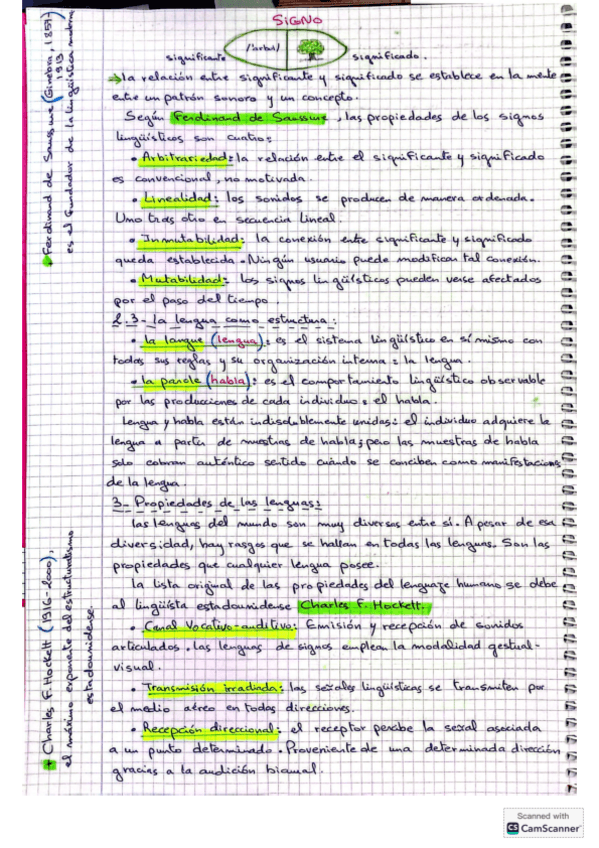 SIGNO
significante /'arbol/ significado.
→ la relación entre significante y significado se establece en la mente
entre un patrón sonoro y un concepto.
Según Ferdinand de Saussure, las propiedades de los signos
lingüísticos son cuatro:
• Arbitrariedad: la relación entre el significante y significado
es convencional, no motivada.
• Linealidad: los sonidos se producen de manera ordenada.
Uno tras otro en secuencia lineal.
• Inmutabilidad: la conexión entre significante y significado
queda establecida. Ningún usuario puede modificar tal conexión.
• Mutabilidad: los signos lingüísticos pueden verse afectados
por el paso del tiempo.
2.3- La lengua como estructura:
• la langue (lengua): es el sistema lingüístico en sí mismo con
todas sus reglas y su organización interna: la lengua.
• la parole (habla): es el comportamiento lingüístico observable
por las producciones de cada individuo: el habla.
Lengua y habla están indisolublemente unidas: el individuo adquiere la
lengua a partir de muestras de habla; pero las muestras de habla
solo cobran auténtico sentido cuando se conciben como manifestaciones
de la lengua.
3- Propiedades de las lenguas:
las lenguas del mundo son muy diversas entre sí. A pesar de esa
diversidad, hay rasgos que se hallan en todas las lenguas. Son las
propiedades que cualquier lengua posee.
la lista original de las propiedades del lenguaje humano se debe
al lingüista estadounidense Charles F. Hockett.
• Canal Vocativo-auditivo: Emisión y recepción de sonidos
articulados. las lenguas de signos emplean la modalidad gestual-
visual.
• Transmisión irradiada: las señales lingüísticas se transmiten por
el medio aéreo en todas direcciones.
• Recepción direccional: el receptor percibe la señal asociada
a un punto determinado. Proveniente de una determinada dirección
gracias a la audición biaural.
Ferdinand de Saussure (Ginebra, 1857-
1913
es el fundador de la lingüística moderna
Charles F. Hockett (1916-2000),
el máximo exponente del estructuralismo
estadounidense.
Scanned with
CS CamScanner